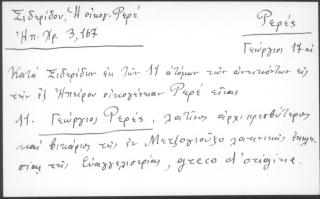 Σιδερίδου, Ἡ οἰκογ. Ρερέ
Ἠπ. Χρ. 3, 167
Ρερές
Γεώργιος 17 αἰ
Κατὰ Σιδερίδην ἐκ τῶν 11 ἀτόμων τῶν ἀνηκόντων εἰς
τὴν ἐξ Ἠπείρου οἰκογένειαν Ρερέ εἶναι
11. Γεώργιος Ρερές, λατῖνος ἀρχιπρεσβύτερος
καὶ βικάριος τῆς ἐν Μετζογιοῦζο λατινικῆς ἐκκλη-
σίας τῆς Εὐαγγελιστρίας, greco d'origine.